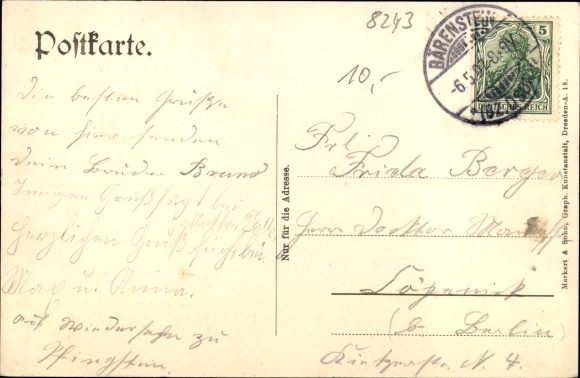 8243
Postkarte.
10,-
BÄRENSTEIN
-6.5.
5
DEUTSCHES REICH
Die besten Grüße
von hier senden
Dein Bruder Bruno
Innigen Gruß fügt bei
Herzlichen Gruß fügt bei
Max u. Anna.
auf Wiedersehn zu
Pfingsten.
Frl.
Frida Berger
Herrn Doktor
Cöpenick
(b. Berlin)
N. 4.
Nur für die Adresse.
Markert & Sohn, Graph. Kunstanstalt, Dresden-A. 18.